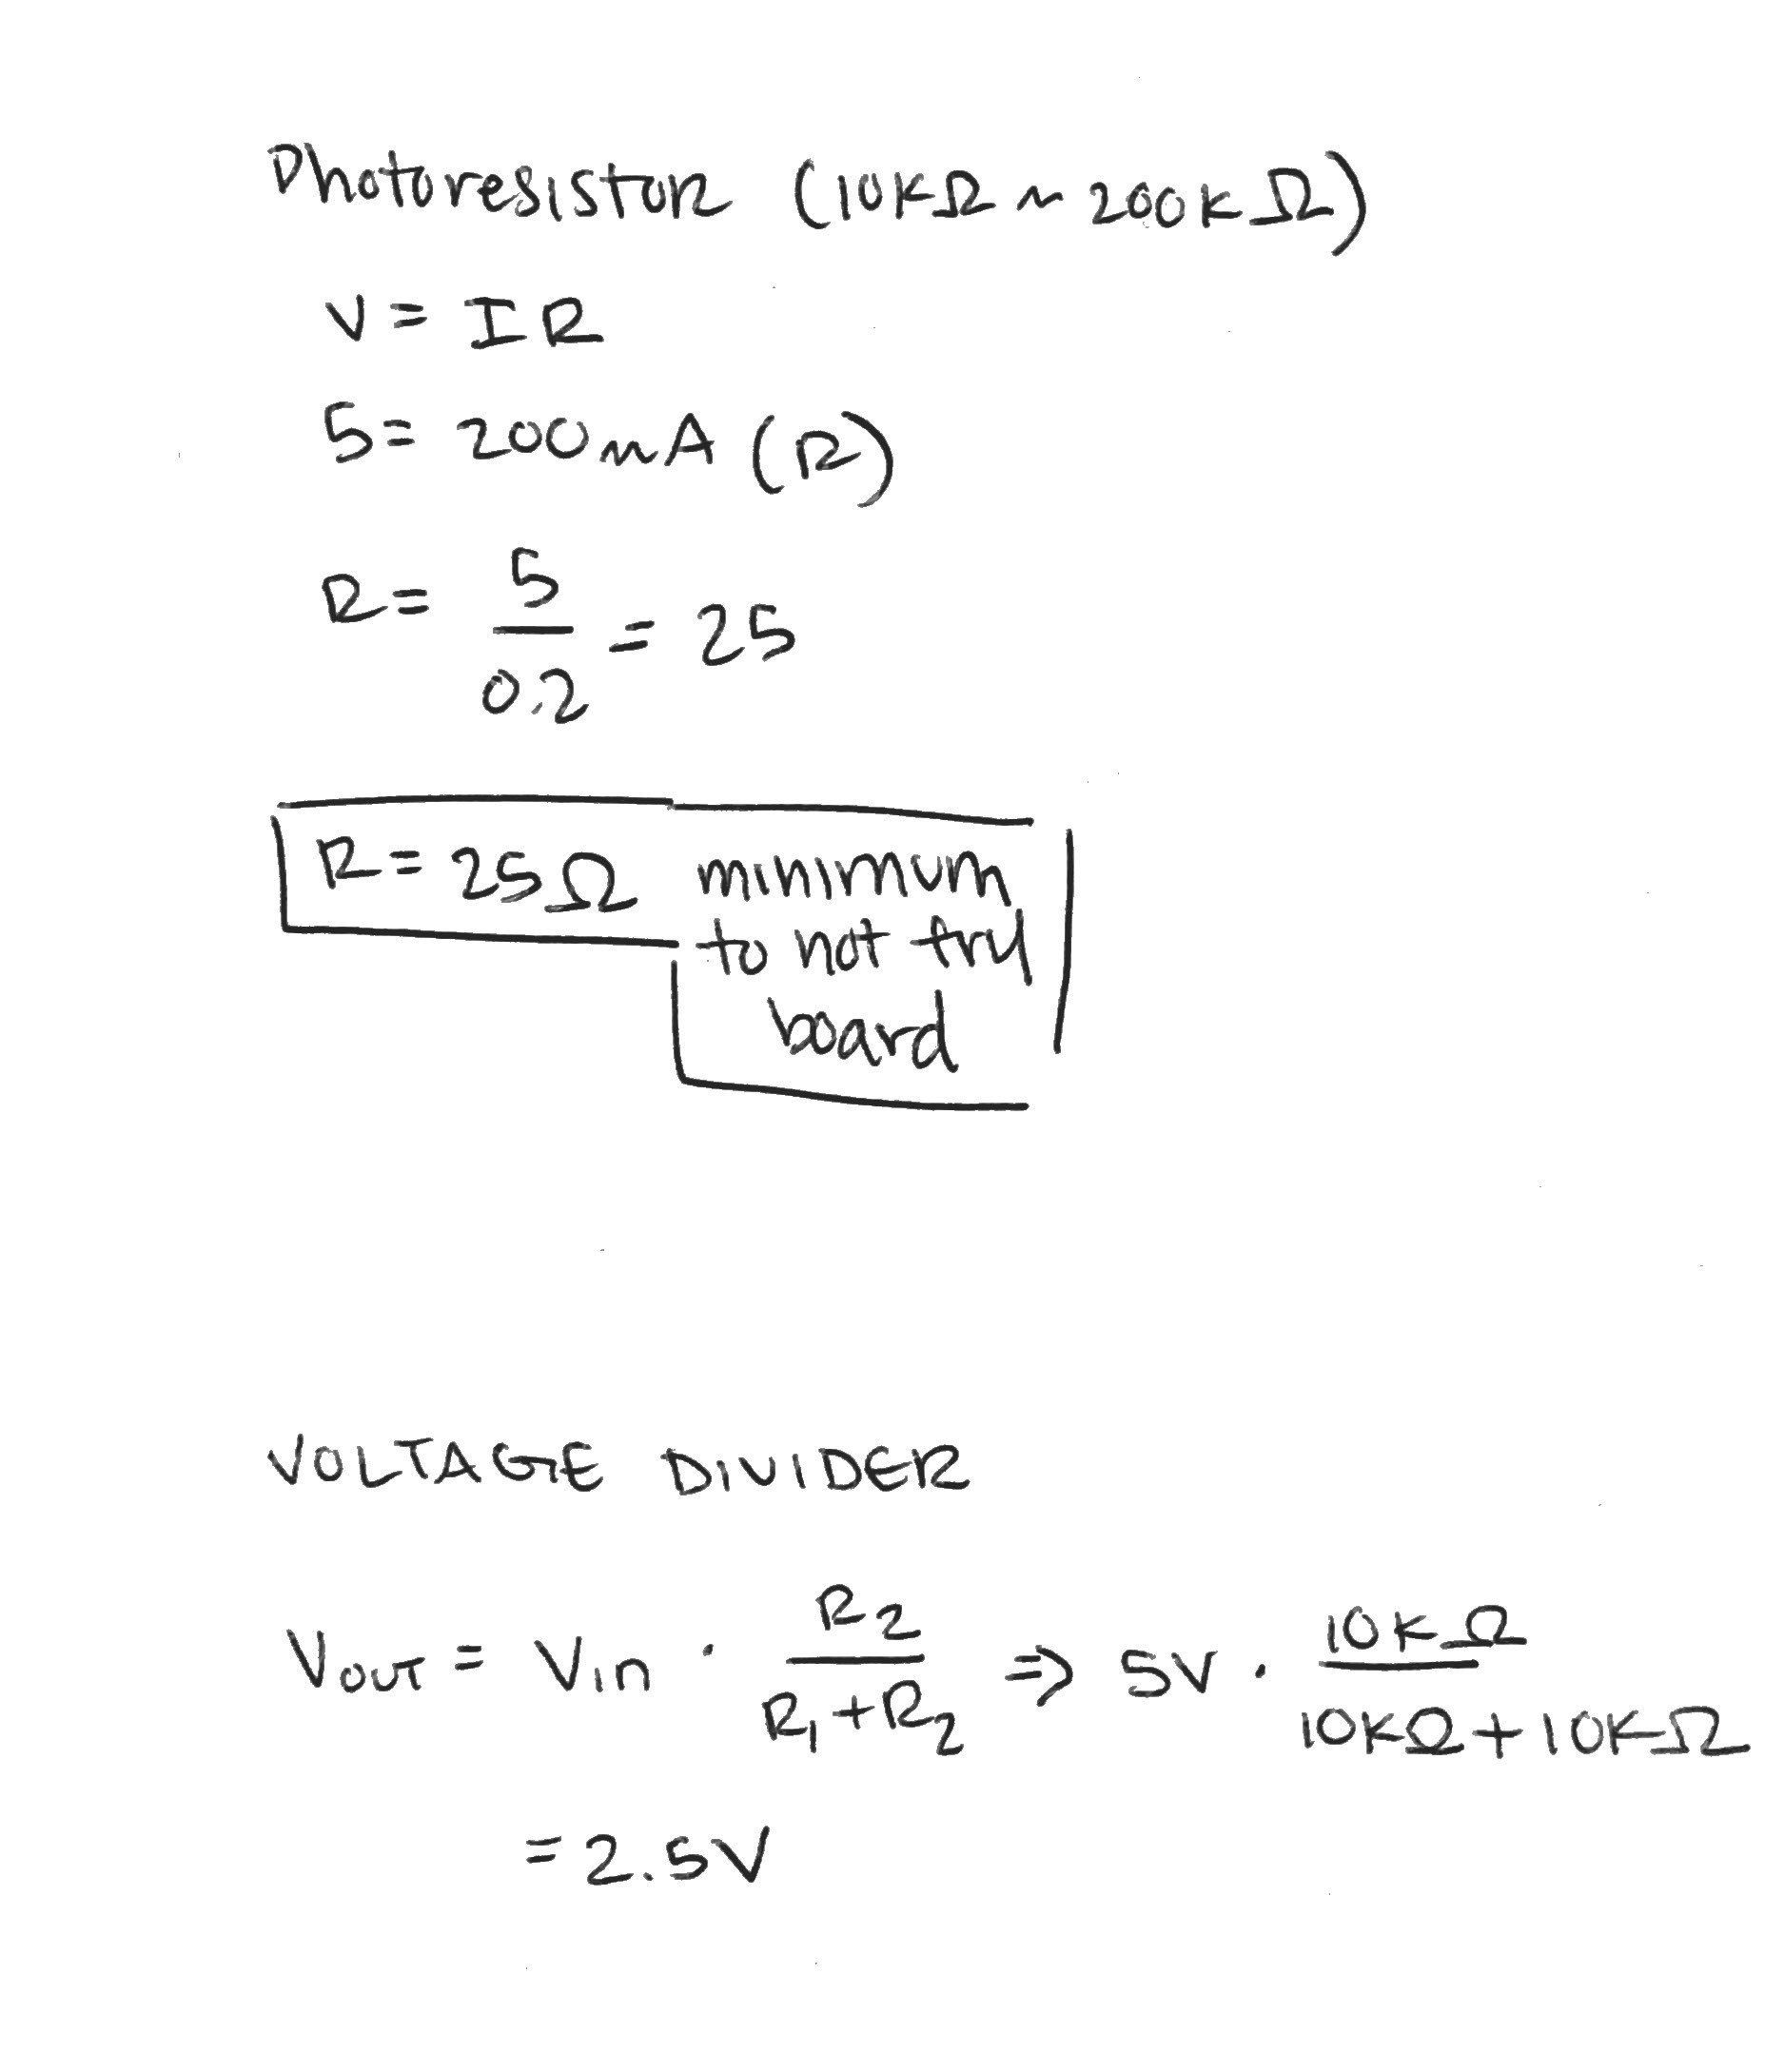 Photoresistor (10KΩ ~ 200KΩ)
V = IR
5 = 200mA (R)
R = 5/0.2 = 25
R = 25Ω minimum
to not fry
board
VOLTAGE DIVIDER
Vout = Vin · R2/(R1+R2) ⇒ 5V · 10KΩ/(10KΩ+10KΩ)
= 2.5V